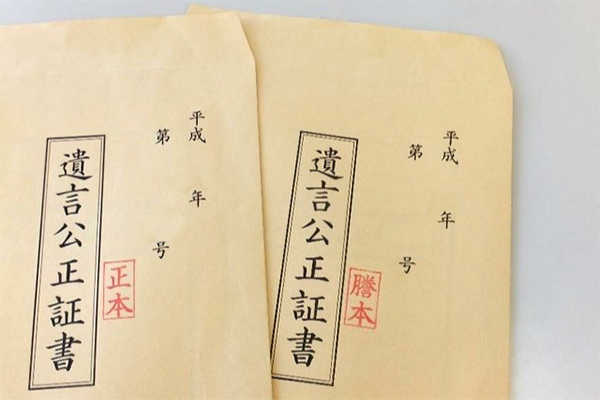 平成 年
第 号
遺言公正証書
正本
平成 年
第 号
遺言公正証書
謄本